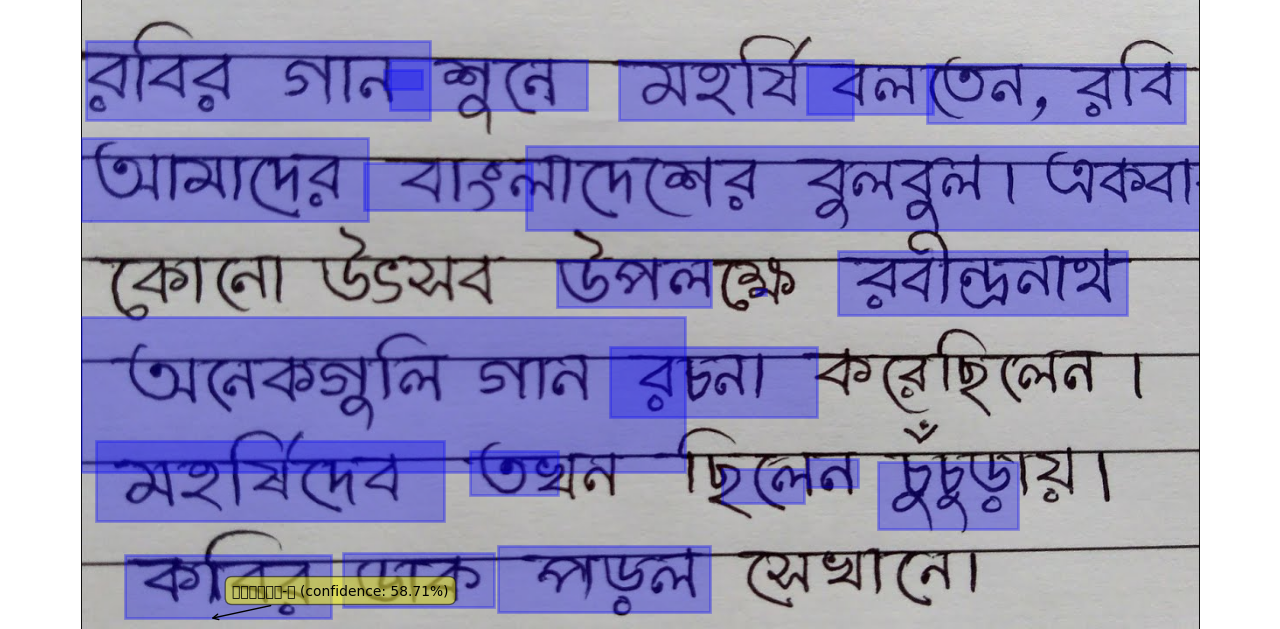 রবির গান শুনে মহর্ষি বলতেন, রবি
আমাদের বাংলাদেশের বুলবুল। একবা
কোনো উৎসব উপলক্ষে রবীন্দ্রনাথ
অনেকগুলি গান রচনা করেছিলেন।
মহর্ষিদেব তখন ছিলেন চুঁচুড়ায়।
কবির ডাক পড়ল সেখানে।
(confidence: 58.71%)